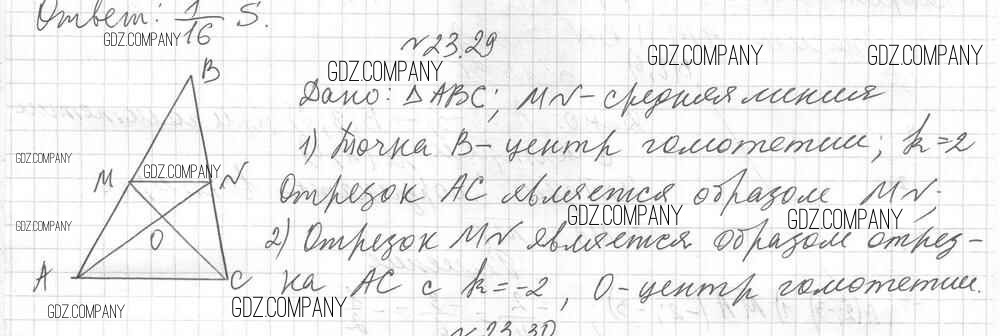 Ответ: 1/16 S.
GDZ.COMPANY
№23.29
GDZ.COMPANY
GDZ.COMPANY
GDZ.COMPANY
B
Дано: △ABC; MN - средняя линия
1) Точка B - центр гомотетии; k=2
GDZ.COMPANY
GDZ.COMPANY
M
N
Отрезок AC является образом MN;
GDZ.COMPANY
GDZ.COMPANY
GDZ.COMPANY
O
2) Отрезок MN является образом отрез-
A
C
ка AC с k=-2, O-центр гомотетии.
GDZ.COMPANY
GDZ.COMPANY
№23.30